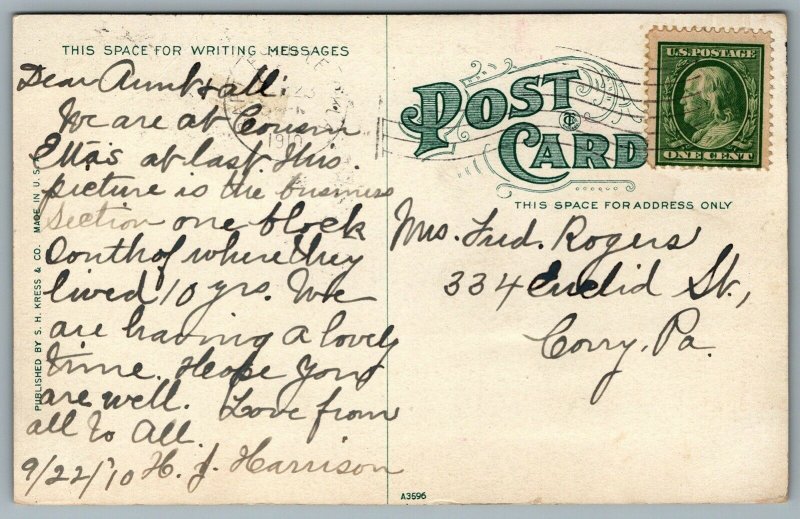 THIS SPACE FOR WRITING MESSAGES
Dear Aunt & all:
We are at Cousin
Etta's at last. This
picture is the business
section one block
South of where they
lived 10 yrs. We
are having a lovely
time. Hope you
are well. Love from
all to All.
9/22/'10 H. J. Harrison
PUBLISHED BY S. H. KRESS & CO. MADE IN U.S.
POST
CARD
THIS SPACE FOR ADDRESS ONLY
U.S. POSTAGE
ONE CENT
1910
Mrs. Fred. Rogers
334 Euclid St.,
Corry, Pa.
A3696